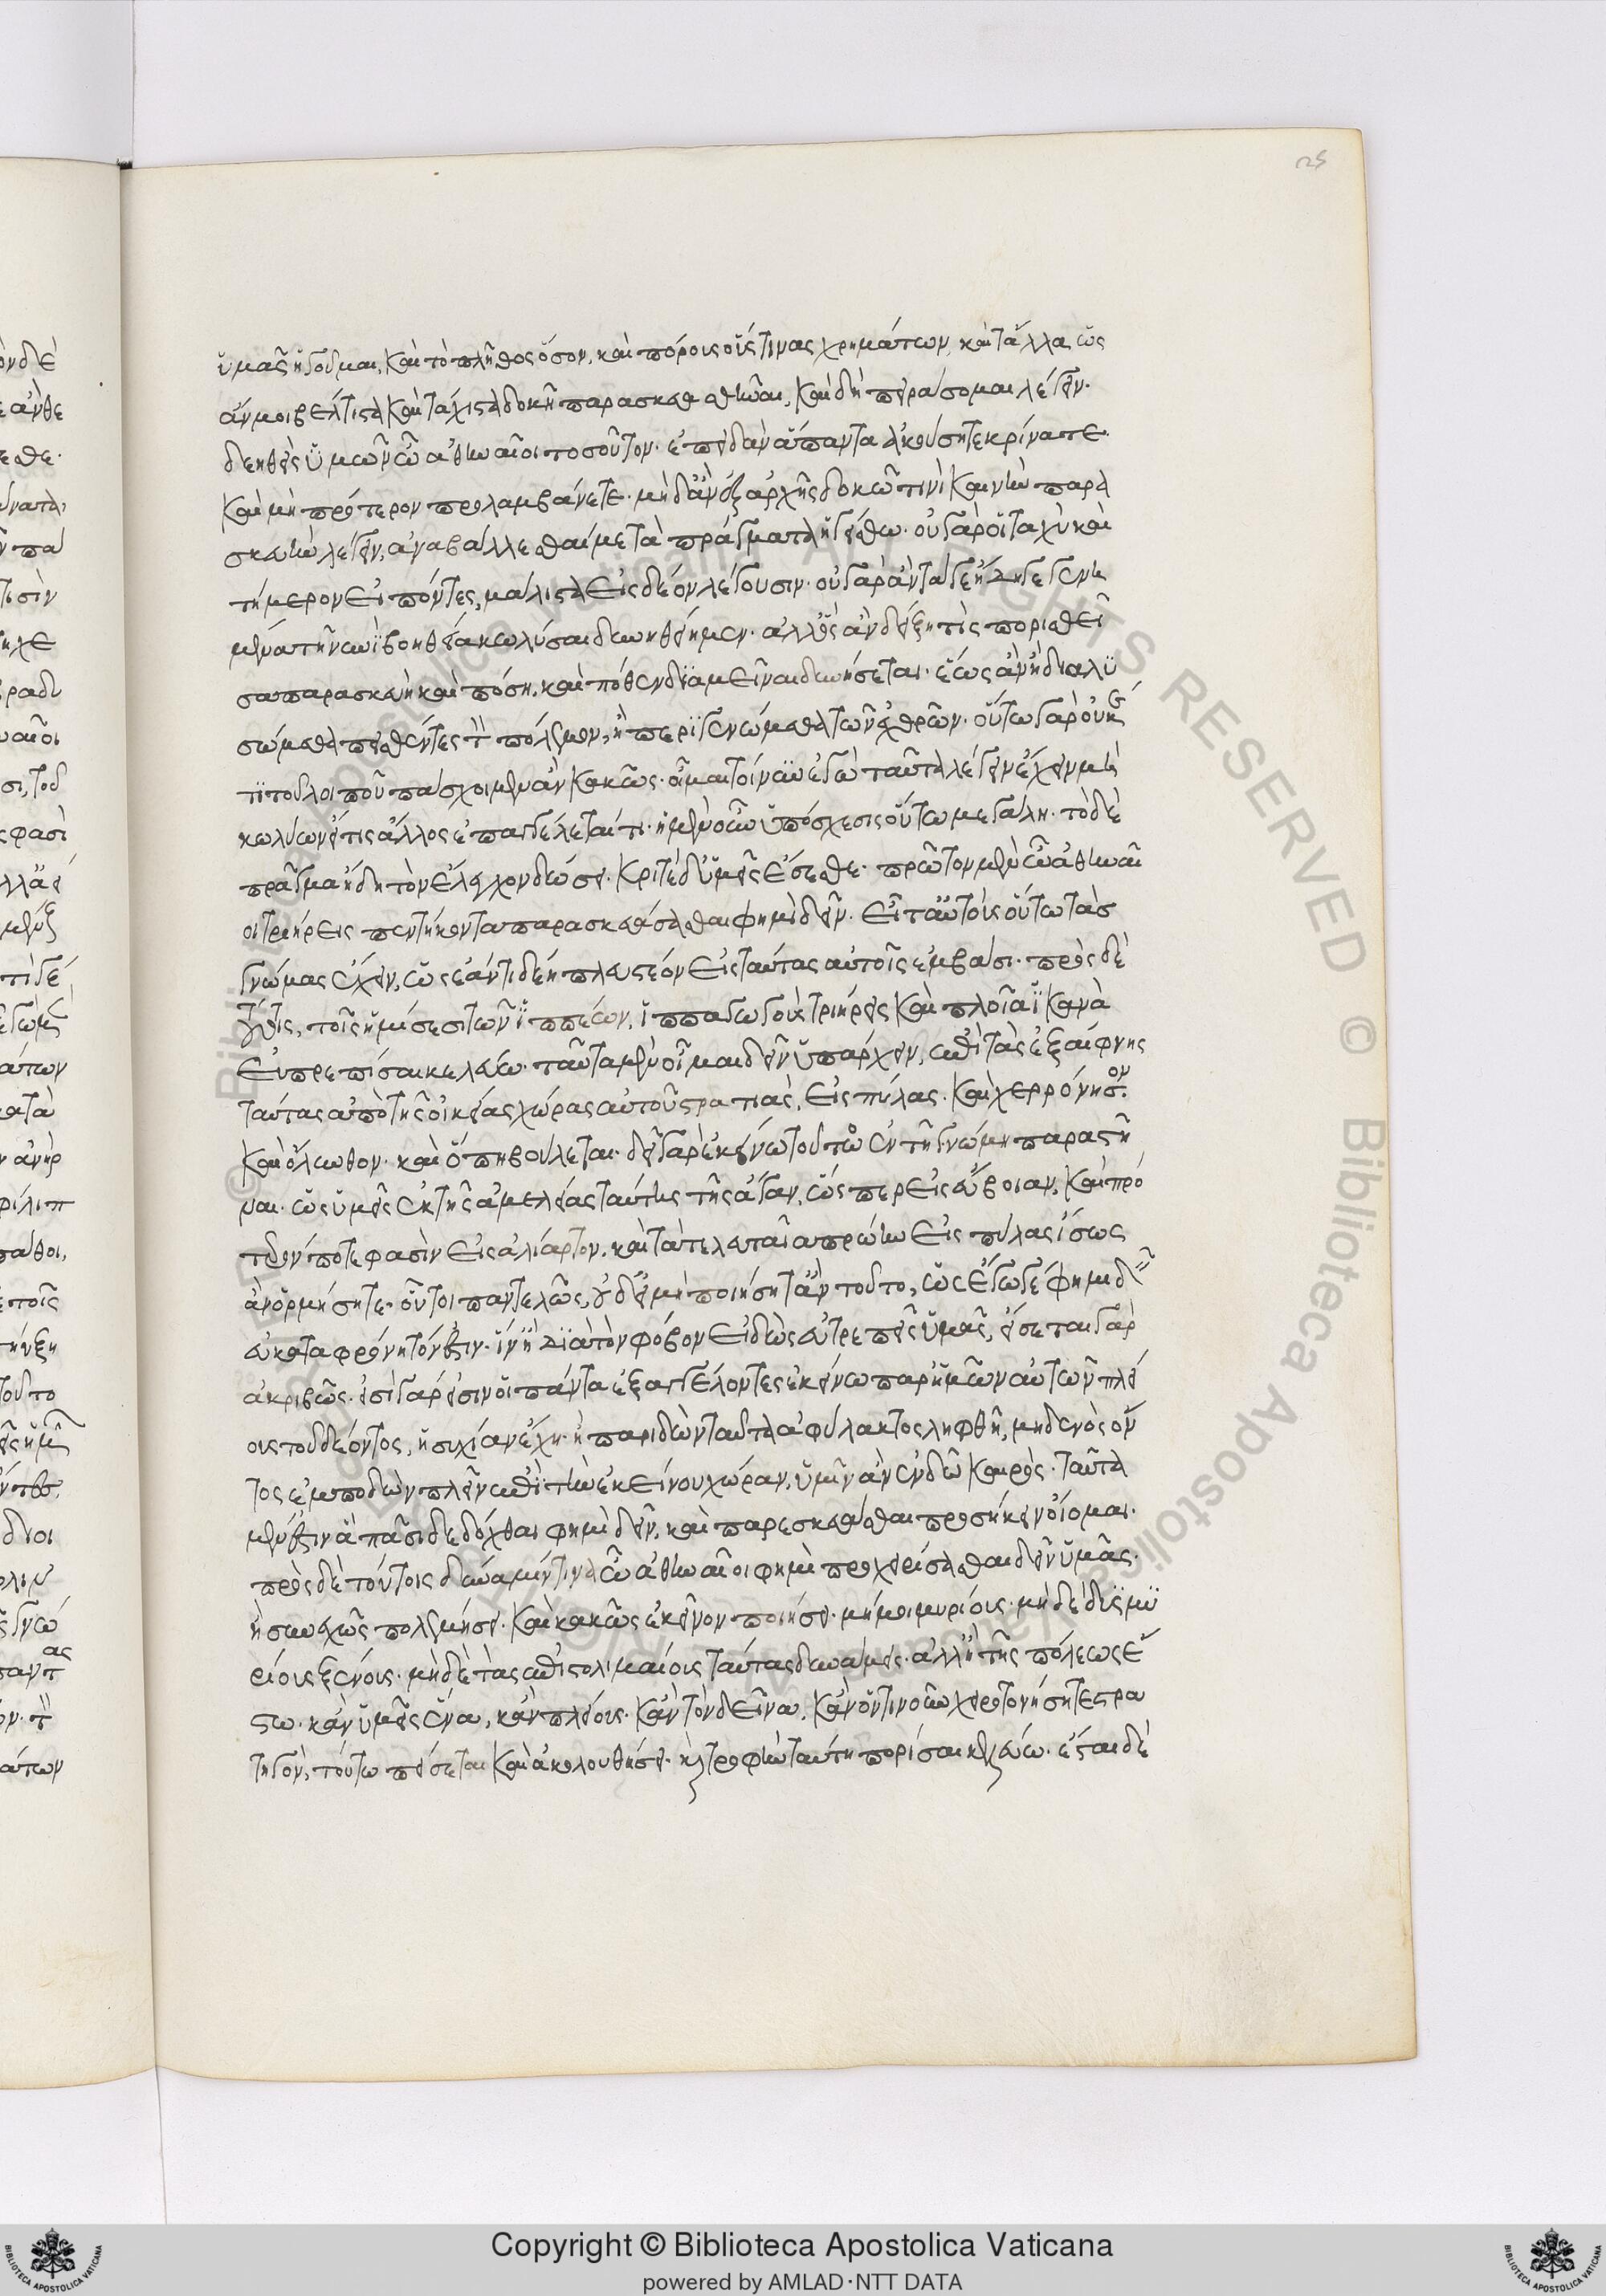 ὑμᾶς ἡγοῦμαι, καὶ τὸ πλῆθος ὅσον, καὶ πόρους οὕς τινας χρημάτων, καὶ τἄλλα ὡς
ἄν μοι βέλτιστα καὶ τάχιστα δοκῆ παρασκευασθῆναι, καὶ δὴ πειράσομαι λέγειν.
δεηθεὶς ὑμῶν ὦ ἀθηναῖοι τοσοῦτον. ἐπειδὰν ἅπαντα ἀκούσητε κρίνατε.
καὶ μὴ πρότερον προλαμβάνετε. μηδ' ἂν ἐξ ἀρχῆς δοκῶ τινὶ καινὴν παρα
σκευὴν λέγειν, ἀναβάλλεσθαί με τὰ πράγματα ἡγείσθω. οὐ γὰρ οἱ ταχὺ καὶ
τήμερον εἰπόντες, μάλιστα εἰς δέον λέγουσιν. οὐ γὰρ ἂν τά γε ἤδη γεγενη
μένα τῆ νυνὶ βοηθεία κωλῦσαι δυνηθείημεν. ἀλλ' ὃς ἂν δείξη τίς πορισθεῖ
σα παρασκευὴ καὶ πόση. καὶ πόθεν διαμεῖναι δυνήσεται. ἕως ἂν ἢ διαλυ
σώμεθα πεισθέντες τὸν πόλεμον, ἢ περιγενώμεθα τῶν ἐχθρῶν. οὕτω γὰρ οὐκέ
τι τοῦ λοιποῦ πάσχοιμεν ἂν κακῶς. οἶμαι τοίνυν ἐγὼ ταῦτα λέγειν ἔχειν μὴ
κωλύων εἴ τις ἄλλος ἐπαγγέλεταί τι. ἡ μὲν οὖν ὑπόσχεσις οὕτω μεγάλη. τὸ δὲ
πρᾶγμα ἤδη τὸν ἔλεγχον δώσει. κριταὶ δ' ὑμεῖς ἔσεσθε. πρῶτον μὲν ὦ ἀθηναῖ
οι τριήρεις πεντήκοντα παρασκευάσασθαι φημὶ δεῖν. εἶτ' αὐτοὺς οὕτω τὰσ
γνώμας ἔχειν, ὡς ἐάν τι δέη πλευστέον εἰς ταύτας αὐτοῖς ἐμβᾶσι. πρὸς δὲ
τούτοις, τοῖς ἡμίσεσι τῶν ἱππέων, ἱππαγωγοὺς τριήρεις καὶ πλοῖα ἱκανὰ
εὐπρεπίσαι κελεύω. ταῦτα μὲν οἶμαι δεῖν ὑπάρχειν, ἐπὶ τὰς ἐξαίφνης
ταύτας ἀπὸ τῆς οἰκείας χώρας αὐτοῦ στρατιὰς, εἰς πύλας. καὶ χερρόνησον.
καὶ ὄλυνθον. καὶ ὅπη βούλεται. δεῖ γὰρ ἐκείνω τοῦτο ἐν τῆ γνώμη παραστῆ
ναι. ὡς ὑμεῖς ἐκ τῆς ἀμελείας ταύτης τῆς ἄγαν, ὥς περ εἰς εὔβοιαν, καὶ πρό
τερόν ποτε φασὶν εἰς ἁλίαρτον, καὶ τὰ τελευταῖα πρώην εἰς πύλας ἴσως
ἂν ὁρμήσητε. οὔτοι παντελῶς, οὐδ' εἰ μὴ ποιήσητ' ἂν τοῦτο, ὡς ἔγωγέ φημι δεῖν
εὐκαταφρόνητόν ἐστιν. ἵν' ἢ διὰ τὸν φόβον εἰδὼς εὐτρεπεῖς ὑμᾶς, εἴσεται γὰρ
ἀκριβῶς. εἰσὶ γάρ εἰσιν οἱ πάντα ἐξαγγέλοντες ἐκείνω παρ' ἡμῶν αὐτῶν πλεί
ους τοῦ δέοντος, ἡσυχίαν ἔχη. ἢ παριδὼν ταῦτα ἀφύλακτος ληφθῆ, μηδενὸς ὄν
τος ἐμποδὼν πλεῖν ἐπὶ τὴν ἐκείνου χώραν, ὑμῖν ἂν ἐνδῶ καιρὸς. ταῦτα
μέν ἐστιν ἃ πᾶσι δεδόχθαι φημὶ δεῖν, καὶ παρεσκευάσθαι προσήκειν οἴομαι.
πρὸς δὲ τούτοις δύναμίν τινα ὦ ἀθηναῖοι φημὶ προχειρίσασθαι δεῖν ὑμᾶς.
ἣ συνεχῶς πολεμήσει. καὶ κακῶς ἐκεῖνον ποιήσει. μή μοι μυρίους. μηδὲ δισμυ
ρίους ξένους. μηδὲ τὰς ἐπιστολιμαίους ταύτας δυνάμεις. ἀλλ' ἣ τῆς πόλεως ἔ
σται. κἂν ὑμεῖς ἕνα, κἂν πλείους. κἂν τὸν δεῖνα, κἂν ὅντινοῦν χειροτονήσητε στρα
τηγὸν, τούτω πείσεται καὶ ἀκολουθήσει. καὶ τροφὴν ταύτη πορίσαι κελεύω. ἔσται δὲ
Copyright © Biblioteca Apostolica Vaticana
powered by AMLAD·NTT DATA